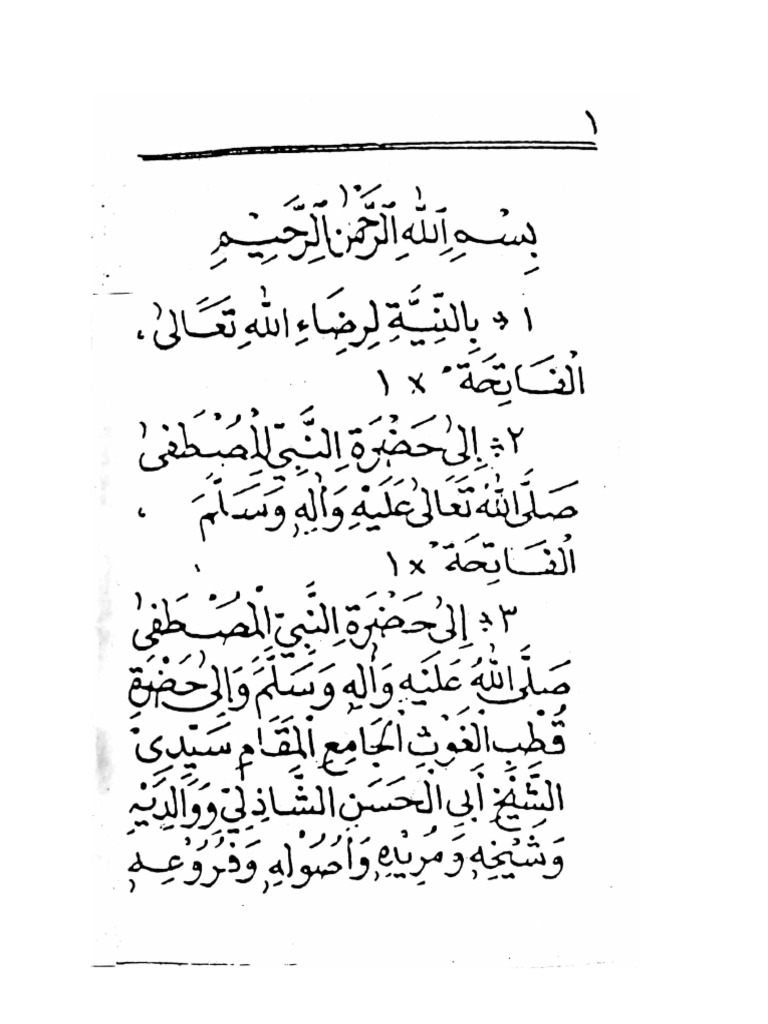 ١
بِسْمِ اللّٰهِ الرَّحْمٰنِ الرَّحِيْمِ
١ ÷ بِالنِّيَّةِ لِرِضَاءِ اللّٰهِ تَعَالىٰ ،
الْفَاتِحَةْ × ١
٢ ÷ اِلىٰ حَضْرَةِ النَّبِيِّ الْمُصْطَفىٰ
صَلَّى اللّٰهُ تَعَالىٰ عَلَيْهِ وَاٰلِهٖ وَسَلَّمَ ،
الْفَاتِحَةْ × ١
٣ ÷ اِلىٰ حَضْرَةِ النَّبِيِّ الْمُصْطَفىٰ
صَلَّى اللّٰهُ عَلَيْهِ وَاٰلِهٖ وَسَلَّمَ وَاِلىٰ حَضْرَةِ
قُطْبِ الْغَوْثِ الْجَامِعِ الْمَقَامِ سَيِّدِىْ
الشَّيْخِ أَبِى الْحَسَنِ الشَّاذِلِيِّ وَوَالِدَيْهِ
وَشَيْخِهٖ وَمُرِيْدِهٖ وَاُصُوْلِهٖ وَفُرُوْعِهٖ